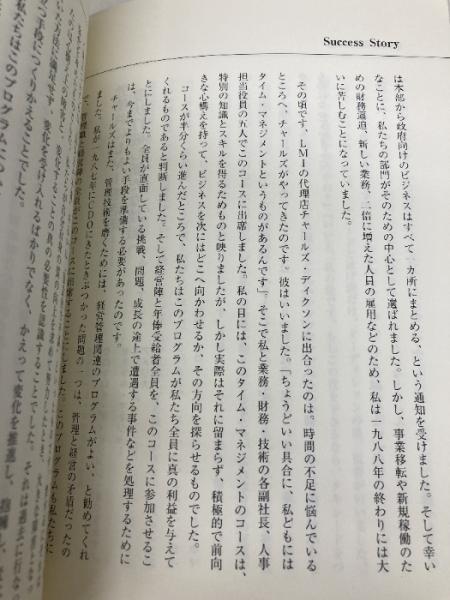 Success Story
は本部から政府向けのビジネスはすべて一カ所にまとめる、という通知を受けました。そして幸い
なことに、私たちの部門がそのための中心として選ばれました。しかし、事業移転や新規稼働のた
めの財務逼迫、新しい業務、二倍に増えた人員の雇用などのため、私は一九八八年の終わりには大
いに苦しむことになっていました。
その頃です、LMIの代理店チャールズ・デイクソンに出合ったのは。時間の不足に悩んでいる
ところへ、チャールズがやってきたのです。彼はいいました。「ちょうどいい具合に、私どもには
タイム・マネジメントというものがあるんです」。そこで私と業務・財務・技術の各副社長、人事
担当役員の五人でこのコースに出席しました。私の目には、このタイム・マネジメントのコースは、
特別の知識とスキルを得るためのものと映りましたが、しかし実際はそれに留まらず、積極的で前向
きな心構えを持って、ビジネスを次にはどこへ向かわせるか、その方向を探らせるものでした。
コースが半分くらい進んだところで、私たちはこのプログラムが私たち全員に真の利益を与えて
くれるものであると判断しました。そして経営陣と年俸受給者全員を、このコースに参加させるこ
とにしました。全員が直面している挑戦、問題、成長の途上で遭遇する事件などを処理するために
は、今までよりもよい手段を準備する必要があったのです。
チャールズはまた、管理技術を磨くためには、経営管理関連のプログラムがよい、と勧めてくれ
ました。私が一九八七年にCDOにきたときぶつかった問題の一つは、管理と経営の矛盾だったの
このコースに出席することにしました。このプログラムも私たちに
変化することの真の必要性を認識することでした。それは過去に行なっ
るばかりでなく、かえって変化を推進し、
私たちはこのプログラムによって